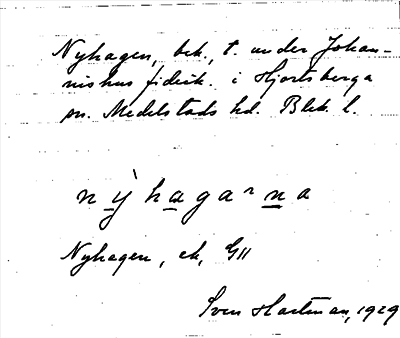 Nyhagen, bek., t. under Johan-
nishus fideik. i Hjortsberga
sn. Medelstads hd. Blek. l.
nỳhagaʳna
Nyhagen, ek, G11
Sven Hartman, 1929